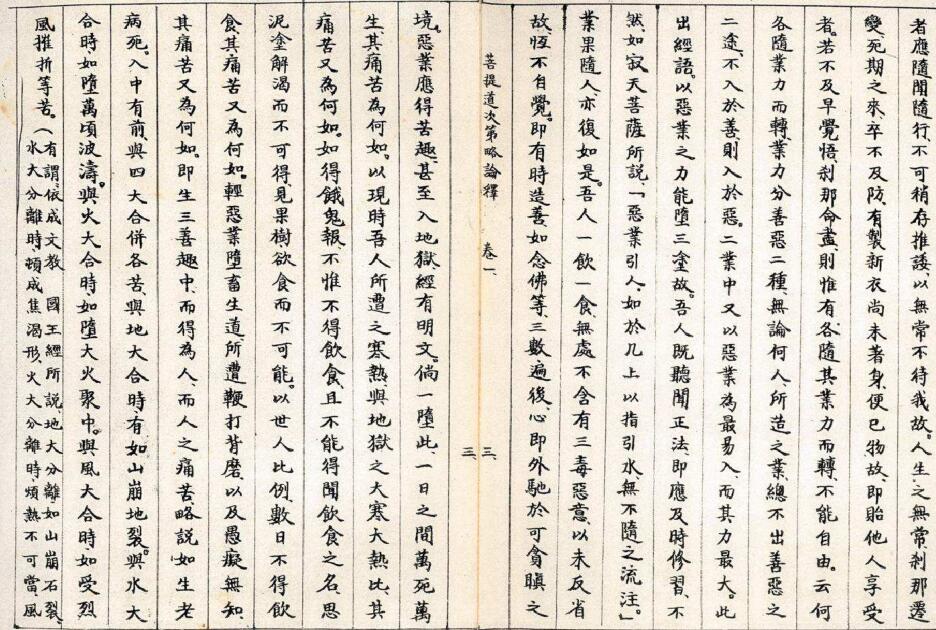 者應隨聞隨行、不可稍存推諉、以無常不待我故。人生之無常、剎那遷
變、死期之來、卒不及防、有製新衣尚未著身、便已物故、即貽他人享受
者。若不及早覺悟、剎那命盡、則惟有各隨其業力而轉、不能自由。云何
各隨業力而轉、業力分善惡二種、無論何人、所造之業、總不出善惡之
二途、不入於善、則入於惡。二業中又以惡業為最易入、而其力最大。此
出經語。以惡業之力能墮三塗故。吾人既聽聞正法、即應及時修習、不
然、如寂天菩薩所說、「惡業引人、如於几上以指引水、無不隨之流注。」
業果隨人、亦復如是。吾人一飲一食、無處不含有三毒惡意、以未反省
故、恆不自覺。即有時造善、如念佛等、三數遍後、心即外馳於可貪瞋之
菩提道次第略論釋 卷一、 三、
三、
境。惡業應得苦趣、甚至入地獄、經有明文。倘一墮此、一日之間萬死萬
生、其痛苦為何如。以現時吾人所遭之寒熱與地獄之大寒大熱比、其
痛苦又為何如。如得餓鬼報、不惟不得飲食、且不能得聞飲食之名、思
泥塗解渴而不可得、見果樹欲食而不可能。以世人比例、數日不得飲
食、其痛苦又為何如。輕惡業墮畜生道、所遭鞭打背磨、以及愚癡無知、
其痛苦又為何如。即生三善趣中、而得為人、而人之痛苦、略說如生老
病死。入中有前、與四大合併各苦、與地大合時、有如山崩地裂。與水大
合時如墮萬頃波濤。與火大合時、如墮大火聚中。與風大合時如受烈
風摧折等苦。（有謂、依成文教 國王經所說、地大分離、如山崩石裂、
水大分離時、頓成焦渴形、火大分離時、煩熱不可當、風